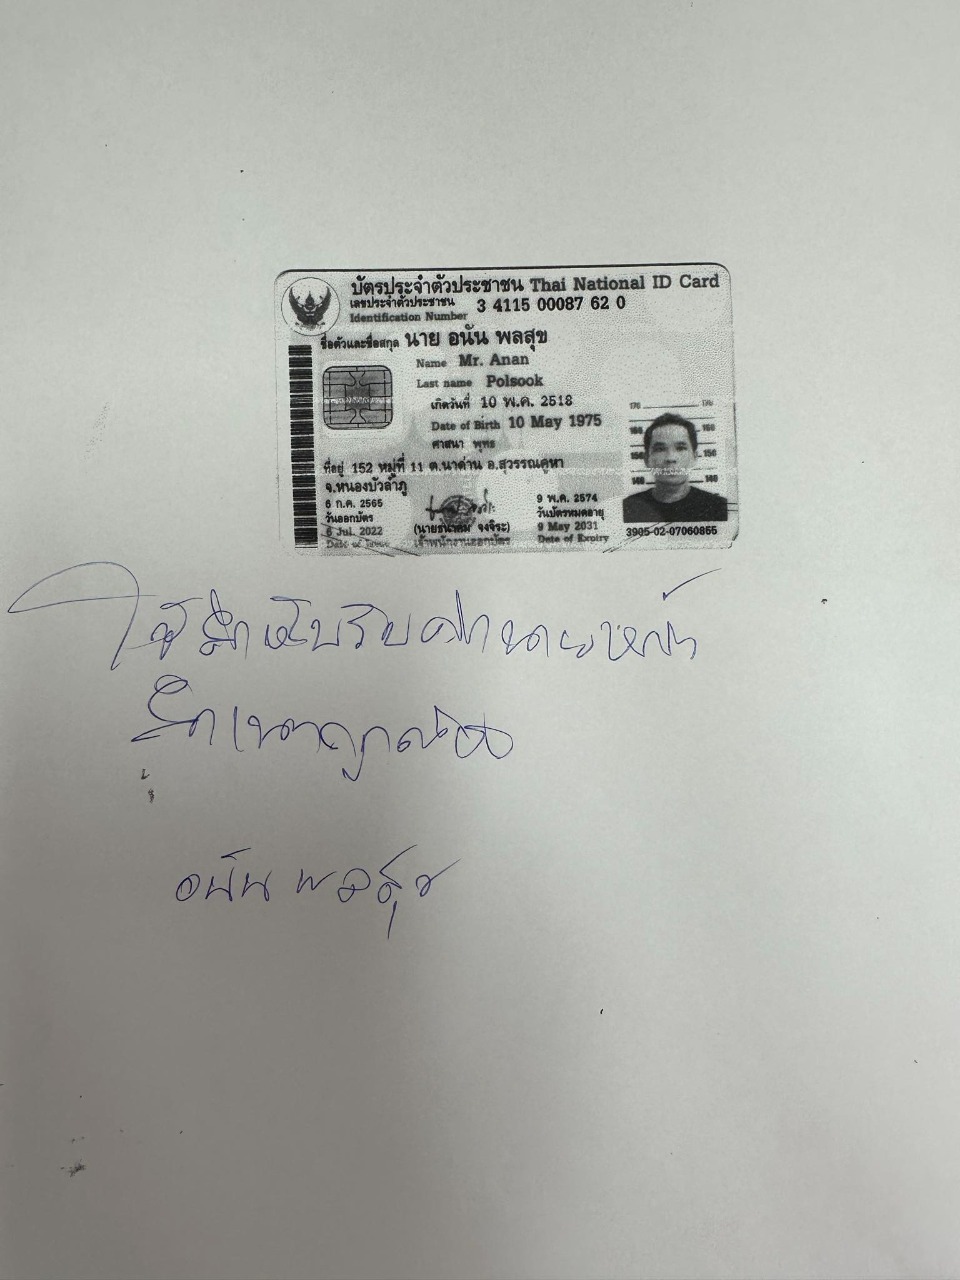 บัตรประจำตัวประชาชน Thai National ID Card
เลขประจำตัวประชาชน 3 4115 00087 62 0
Identification Number
ชื่อตัวและชื่อสกุล นาย อนัน พลสุข
Name Mr. Anan
Last name Polsook
เกิดวันที่ 10 พ.ค. 2518
Date of Birth 10 May 1975
ศาสนา พุทธ
ที่อยู่ 152 หมู่ที่ 11 ต.นาด่าน อ.สุวรรณคูหา
จ.หนองบัวลำภู
6 ก.ค. 2565
วันออกบัตร
6 Jul. 2022
Date of Issue
(นายธนาคม จงจิระ)
เจ้าพนักงานออกบัตร
9 พ.ค. 2574
วันบัตรหมดอายุ
9 May 2031
Date of Expiry
170 170
160 160
150 150
140 140
3905-02-07060855
ใช้สำหรับรับค่านายหน้า
สำเนาถูกต้อง
อนัน พลสุข